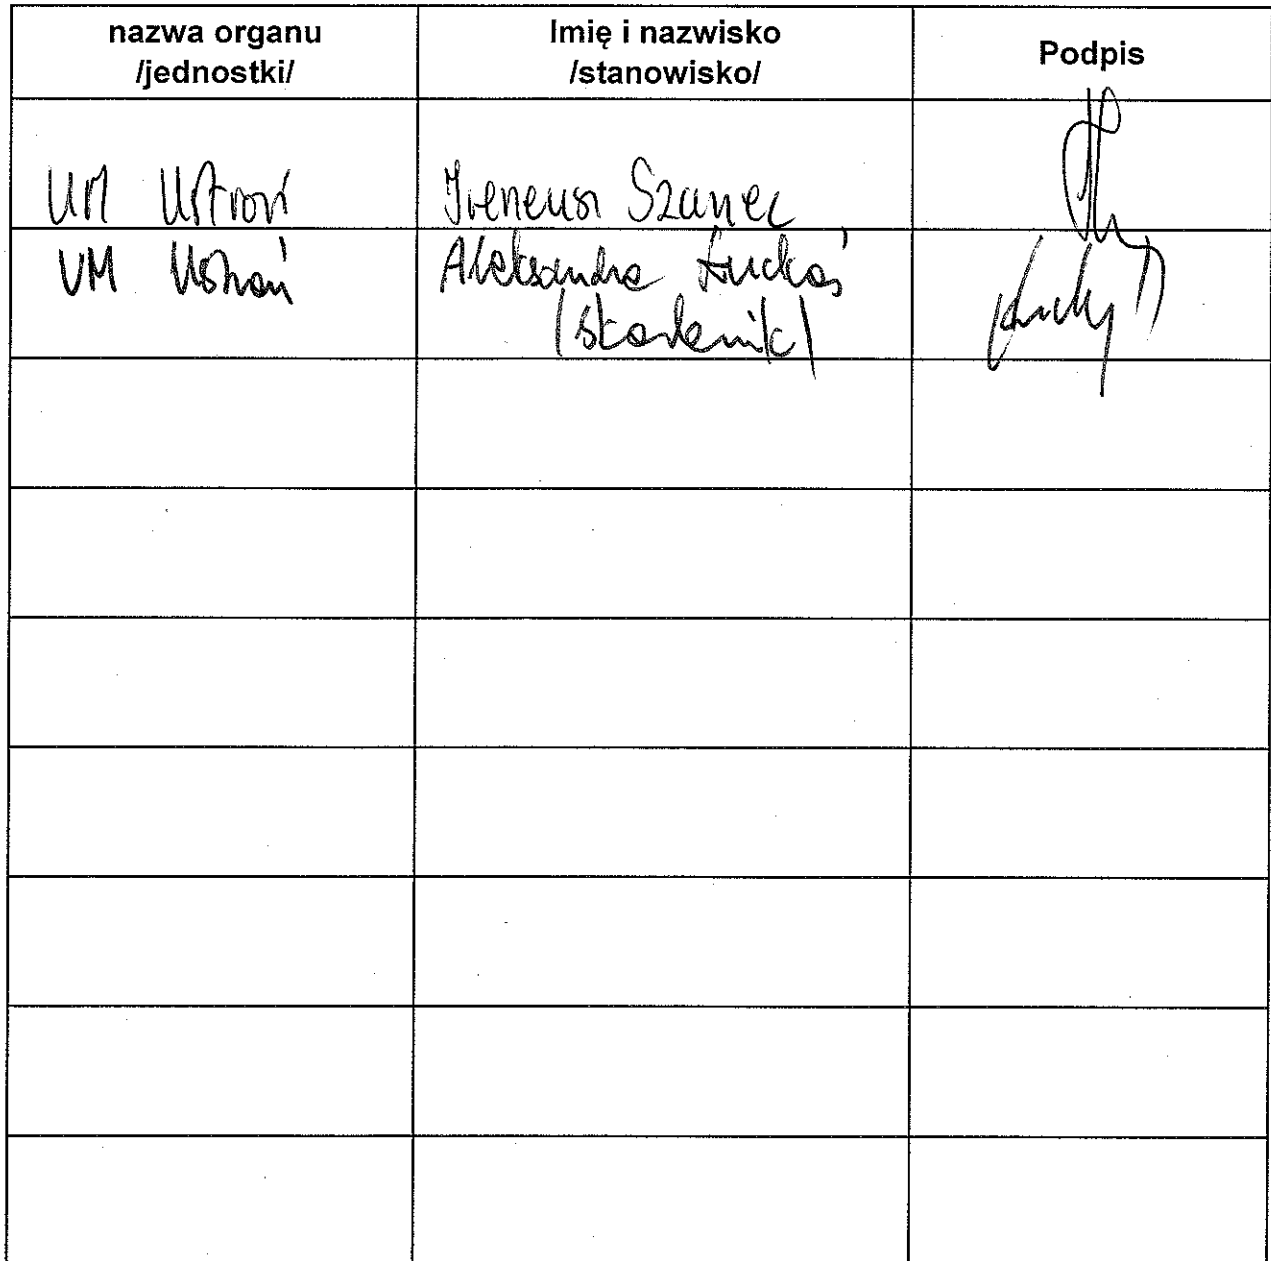 nazwa organu
/jednostki/
Imię i nazwisko
/stanowisko/
Podpis
UM Ustroń
Ireneusz Szarzec
UM Ustroń
Aleksandra Łuckoś
/skarbnik/